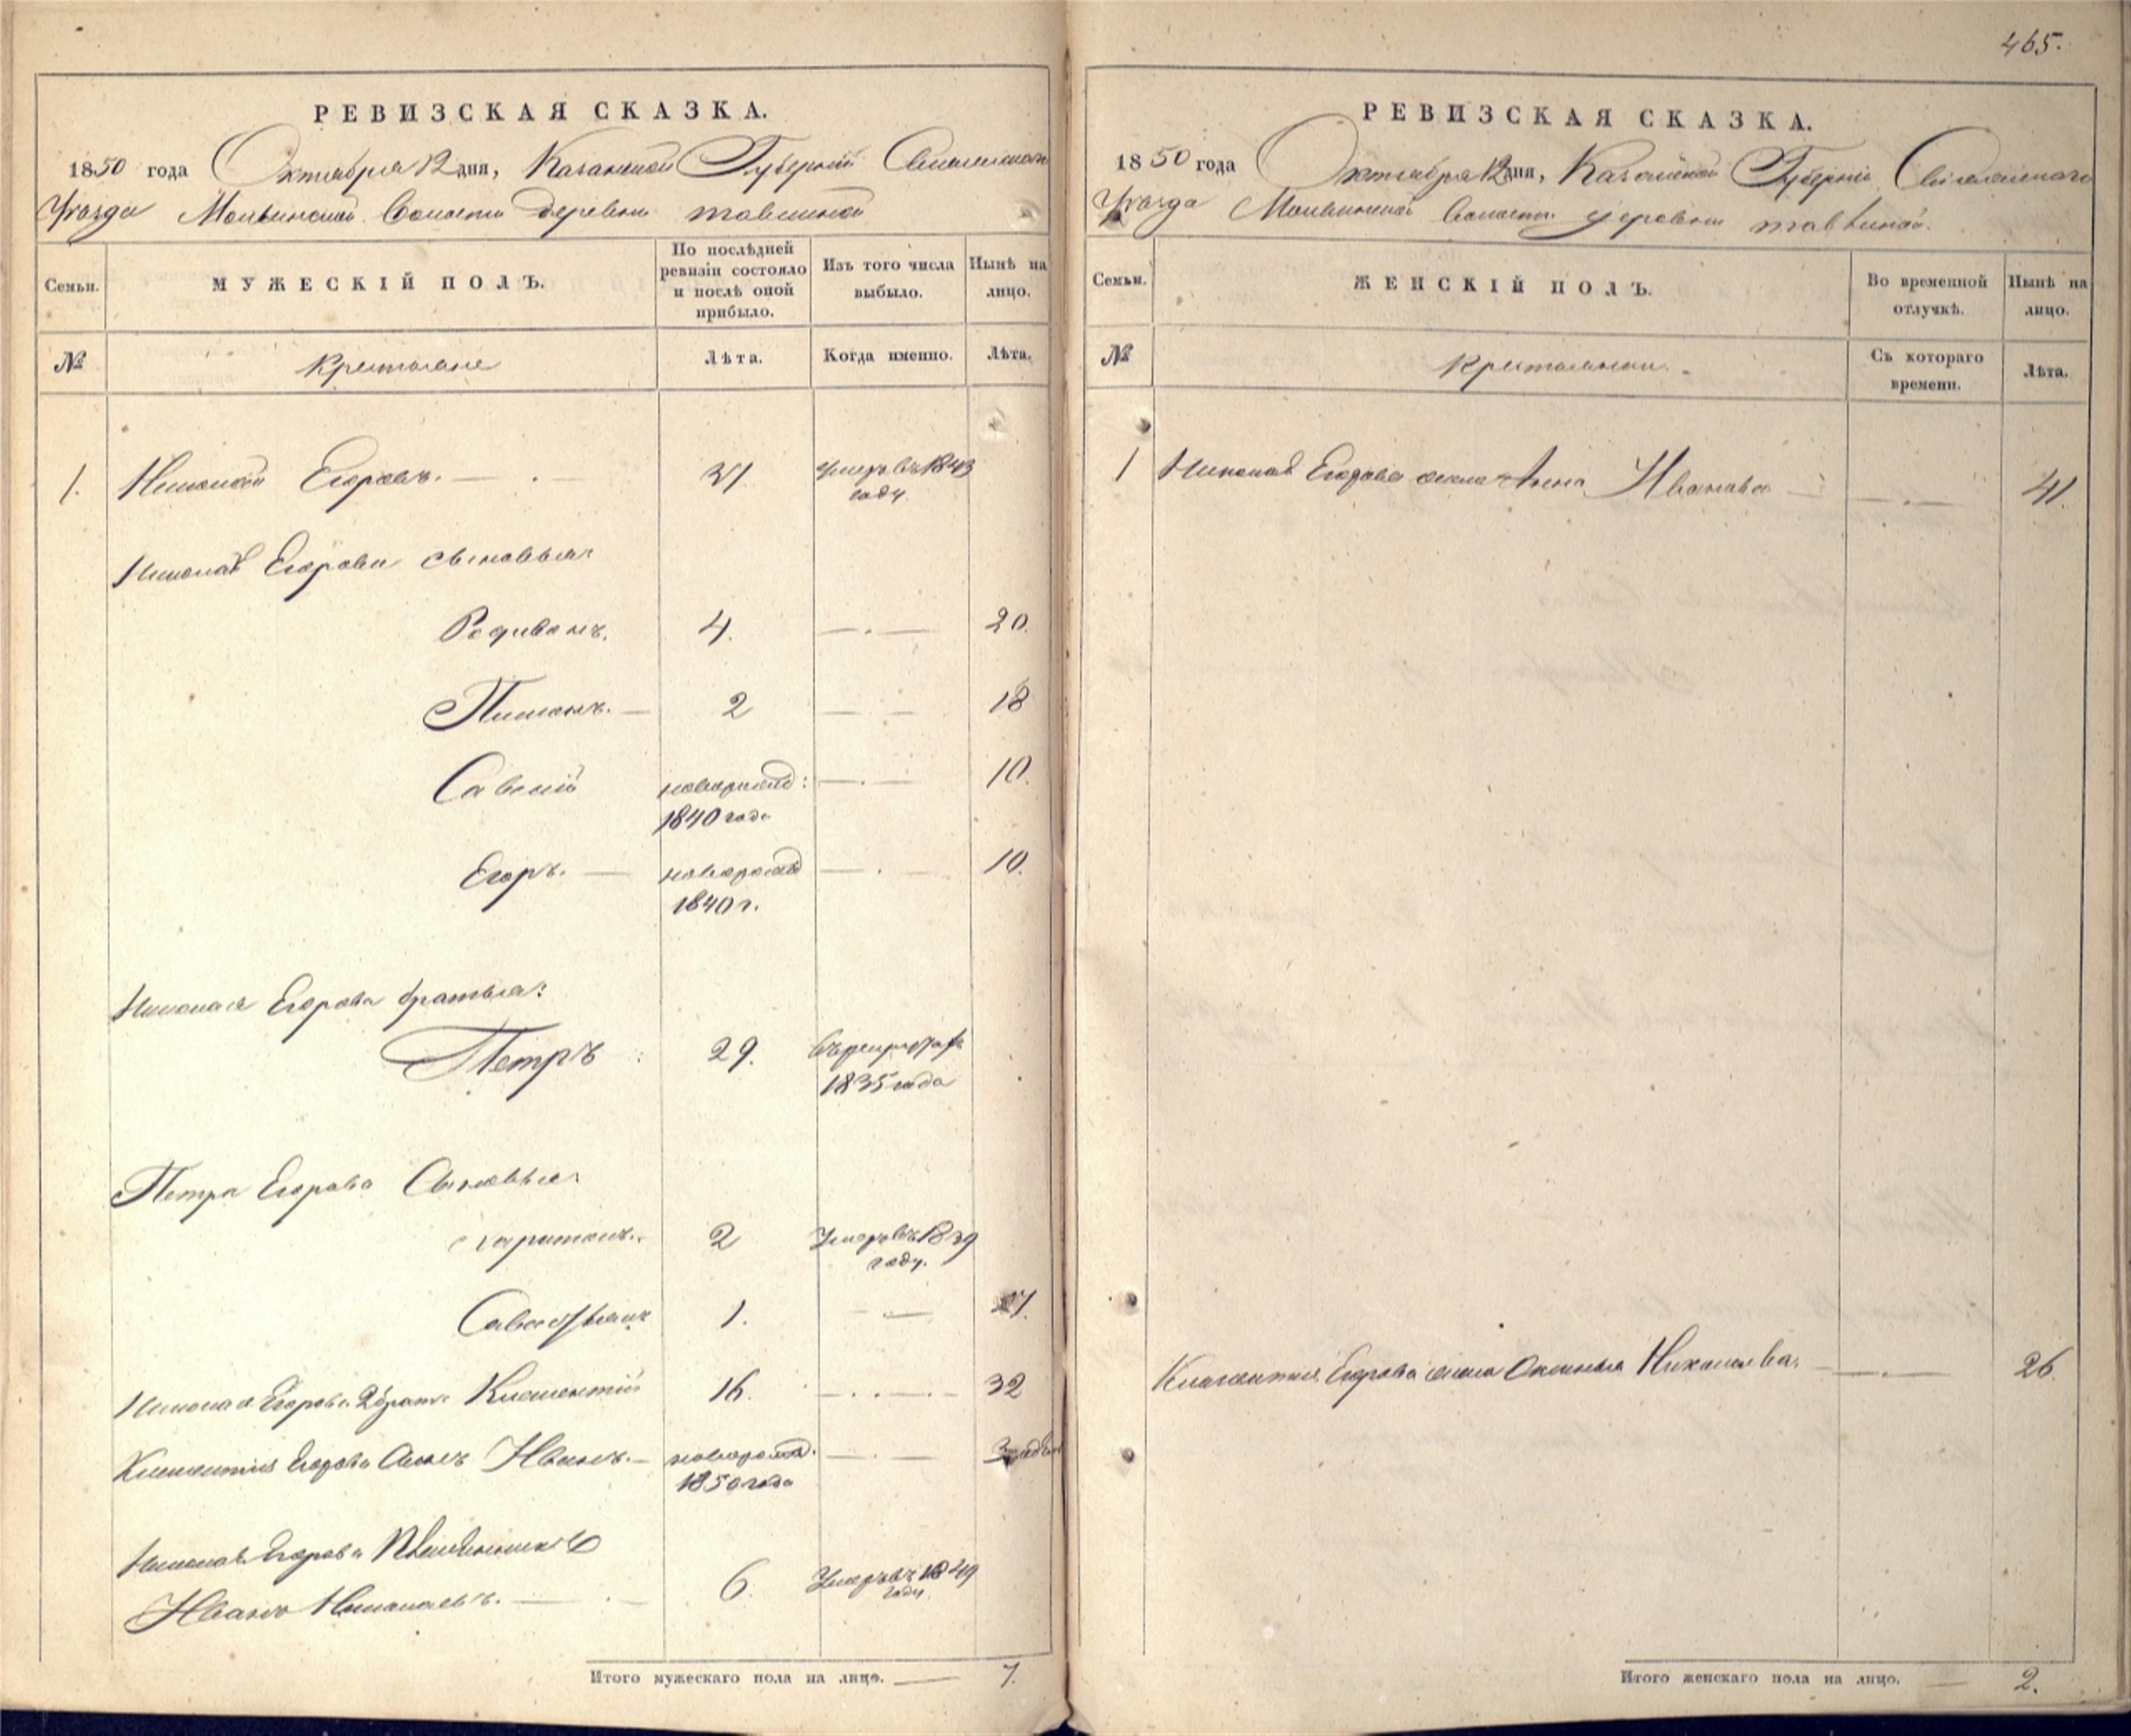 465.
РЕВИЗСКАЯ СКАЗКА.
1850 года Октября 12 дня, Казанской Губерніи
Уѣзда Волости деревни
Семьи.
МУЖЕСКІЙ ПОЛЪ.
По послѣдней ревизіи состояло и послѣ оной прибыло.
Изъ того числа выбыло.
Нынѣ на лицо.
№
Крестьяне
Лѣта.
Когда именно.
Лѣта.
1. Николай Егоровъ. 37 Умеръ въ 1843 году.
Николая Егорова сыновья:
Родивонъ. 4. 20.
Пименъ. 2 18
Савелій новорожд: 1840 года 10.
Егоръ. новорожд 1840 г. 10.
Николая Егорова братья:
Петръ 29. 1835 года
Петра Егорова Сыновья:
Харитонъ. 2 Умеръ въ 1839 году.
1. 17.
Николая Егорова 2 братъ Климентій 16. 32
Климентія Егорова Сынъ Иванъ. новорожд. 1850 года
Николая Егорова Племянникъ
Иванъ Николаевъ. 6. Умеръ въ 1849 году.
Итого мужескаго пола на лицо. 7.
РЕВИЗСКАЯ СКАЗКА.
1850 года Октября 12 дня, Казанской Губерніи
Уѣзда Волости деревни
Семьи.
ЖЕНСКІЙ ПОЛЪ.
Во временной отлучкѣ.
Нынѣ на лицо.
№
Крестьянки.
Съ котораго времени.
Лѣта.
1 Николая Егорова жена Анна Иванова 41.
Климентія Егорова жена Николаева. 26.
Итого женскаго пола на лицо. 2.